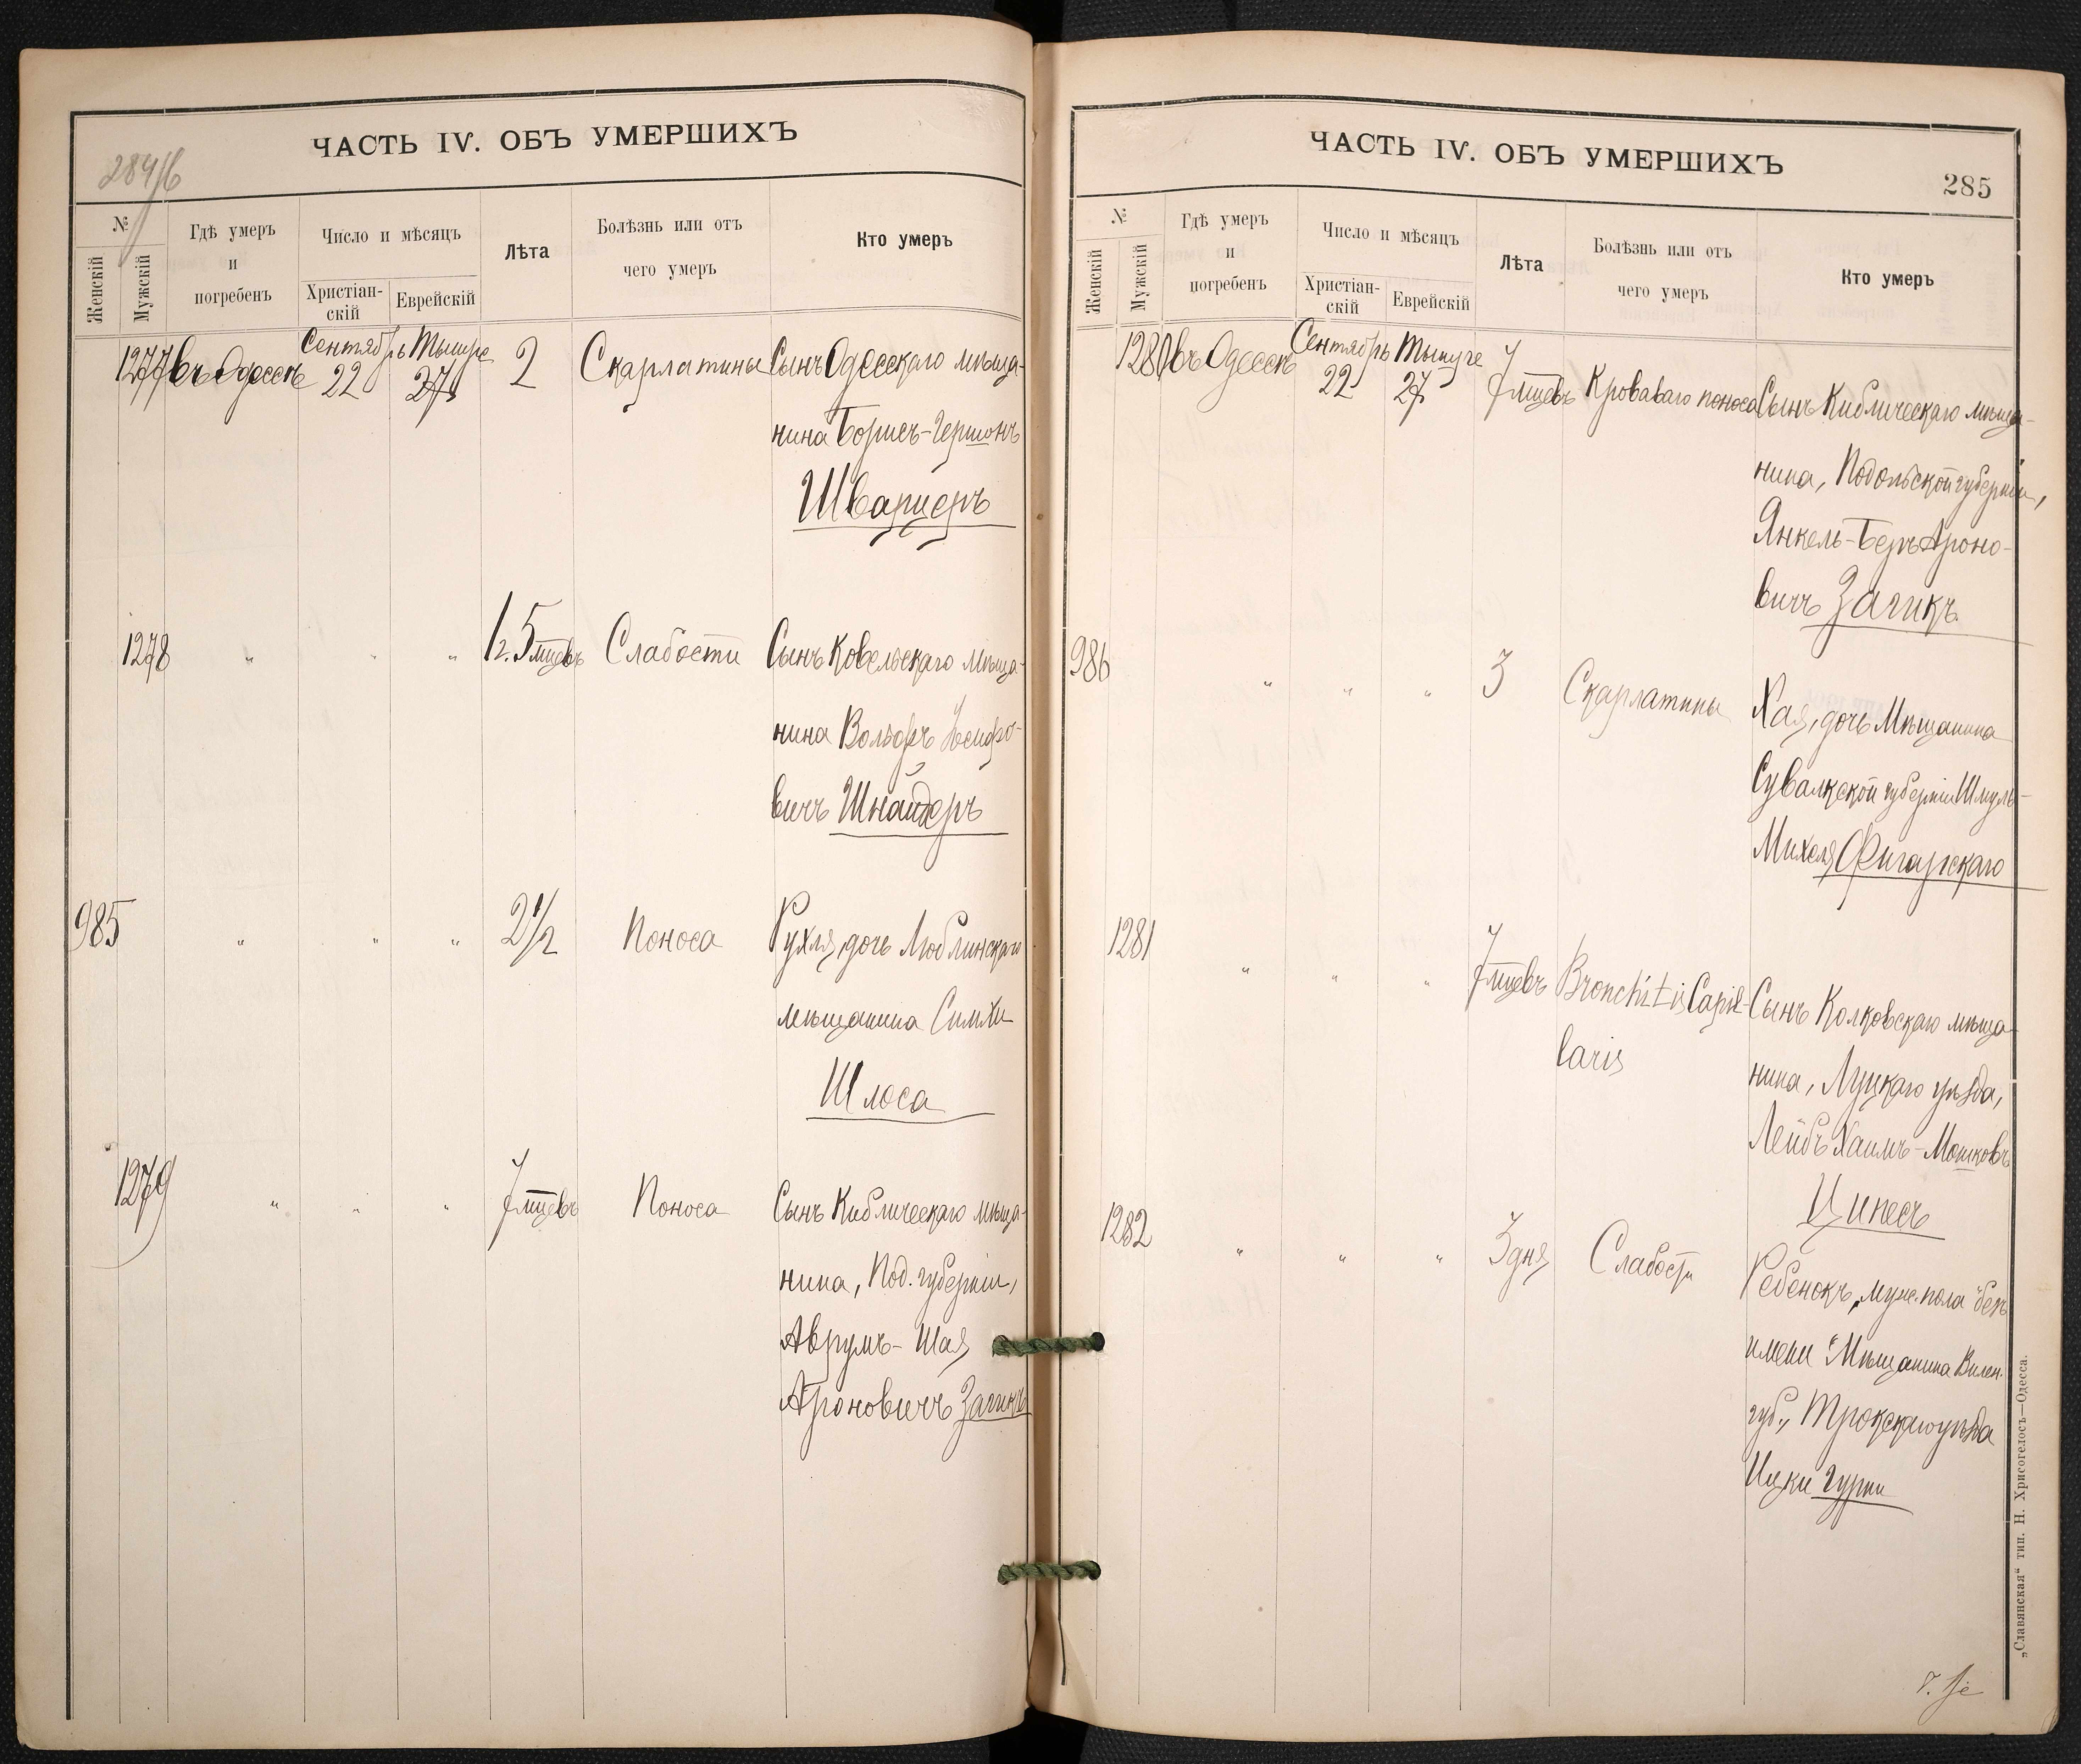 ЧАСТЬ IV. ОБЪ УМЕРШИХЪ
284/б
№
Женскій
Мужскій
Гдѣ умеръ
и
погребенъ
Число и мѣсяцъ
Христіан-
скій
Еврейскій
Лѣта
Болѣзнь или отъ
чего умеръ
Кто умеръ
1277 въ Одессѣ Сентябрь 22 Тышре 27 2 Скарлатины Сынъ Одесскаго мѣща-
нина Борисъ-Гершонъ
Шварцеръ
1278 " " " 1 г. 5 мцевъ Слабости Сынъ Ковельскаго мѣща-
нина Вольфъ Iосифо-
вичъ Шнайдеръ
985 " " " 2 1/2 Поноса Рухля, дочь Люблинскаго
мѣщанина Симхи
Шлоса
1279 " " " 7 мцевъ Поноса Сынъ Киблическаго мѣща-
нина, Под. губерніи,
Аврумъ-Шая
Ароновичъ Загикъ
ЧАСТЬ IV. ОБЪ УМЕРШИХЪ
285
№
Женскій
Мужскій
Гдѣ умеръ
и
погребенъ
Число и мѣсяцъ
Христіан-
скій
Еврейскій
Лѣта
Болѣзнь или отъ
чего умеръ
Кто умеръ
1280 въ Одессѣ Сентябрь 22 Тышре 27 7 мцевъ Кроваваго поноса Сынъ Киблическаго мѣща-
нина, Подольской губерніи,
Янкель-Беръ Ароно-
вичъ Загикъ
986 " " " 3 Скарлатины Хая, дочь Мѣщанина
Сувалкской губерніи Шмуль-
Михеля Фигарскаго
1281 " " " 7 мцевъ Bronchitis Capil- Сынъ Колковскаго мѣща-
laris
нина, Луцкаго уѣзда,
Лейбъ Хаимъ-Мошковъ
Цинесъ
1282 " " " 3 дня Слабости Ребенокъ, муж. пола "безъ
имени" Мѣщанина Вилен.
губ., Трокскаго уѣзда
Ицки Гурни
„Славянская“ тип. Н. Хрисогелосъ—Одесса.